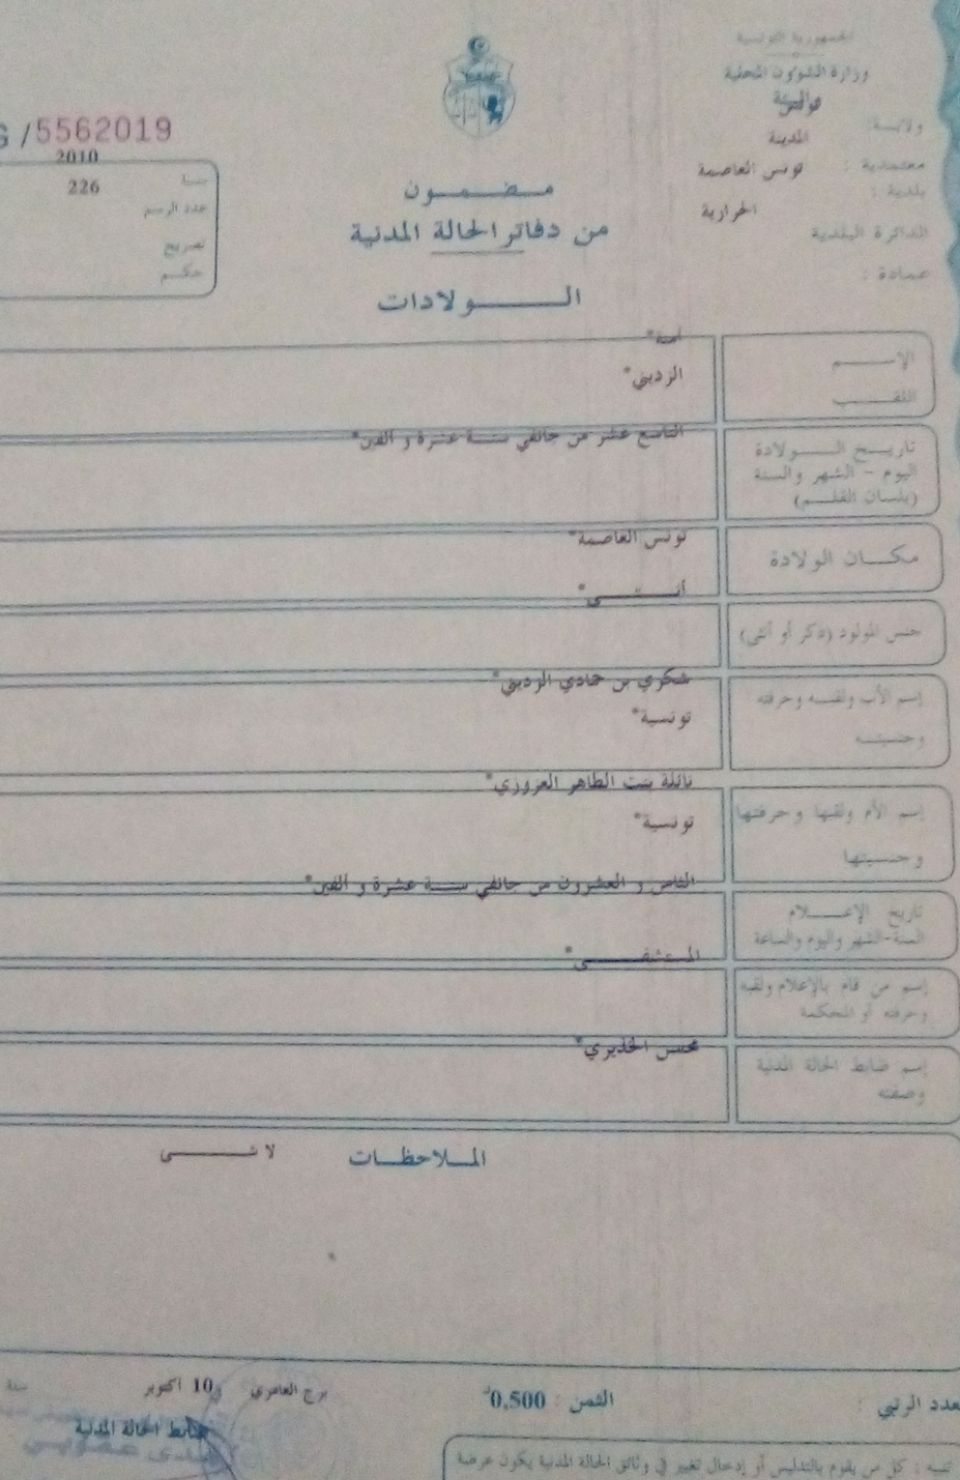 الجمهورية التونسية
وزارة الشؤون المحلية
والبيئة
ولاية:
المدينة
معتمدية : تونس العاصمة
بلدية :
الحرارية
الدائرة البلدية
عمادة :
G /5562019
2010
سنة
226
عدد الرسم
تصريح
حكم
مضمون
من دفاتر الحالة المدنية
الولادات
الإسم
اللقب
الرديني*
تاريخ الولادة
اليوم - الشهر والسنة
(بلسان القلم)
التاسع عشر من جانفي سنة عشرة و الفين*
مكان الولادة
تونس العاصمة*
جنس المولود (ذكر أو أنثى)
أنثى*
إسم الأب ولقبه وحرفته
وجنسيته
شكري بن حمادي الرديني*
تونسية*
إسم الأم ولقبها وحرفتها
وجنسيتها
نائلة بنت الطاهر العزوزي*
تونسية*
تاريخ الإعلام
السنة-الشهر واليوم والساعة
الثامن و العشرون من جانفي سنة عشرة و الفين*
إسم من قام بالإعلام ولقبه
وحرفته أو المحكمة
المستشفى*
إسم ضابط الحالة المدنية
وصفته
محسن الخذيري*
الملاحظات
لا شى
عدد الرتبي :
الثمن : 0,500د
برج العامري
10 أكتوبر
سنة
ضابط الحالة المدنية
تنبيه : كل من يقوم بالتدليس أو إدخال تغيير في وثائق الحالة المدنية يكون عرضة